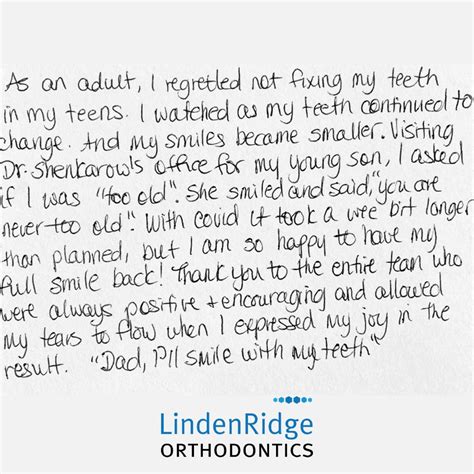 As an adult, I regretted not fixing my teeth
in my teens. I watched as my teeth continued to
change. And my smiles became smaller. Visiting
Dr. Shenkarow's office for my young son, I asked
if I was "too old". She smiled and said, "you are
never too old". With covid it took a wee bit longer
than planned, but I am so happy to have my
full smile back! Thank you to the entire team who
were always positive + encouraging and allowed
my tears to flow when I expressed my joy in the
result. "Dad, I'll smile with my teeth"
LindenRidge
ORTHODONTICS